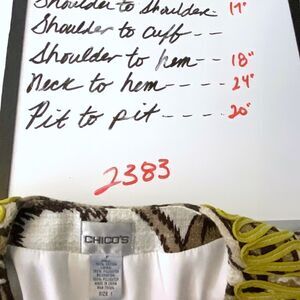 Shoulder to Shoulder- 17"
Shoulder to cuff - -
Shoulder to hem - - 18"
Neck to hem - - - - 24"
Pit to pit - - - - 20"
2383
CHICO'S
SIZE 1